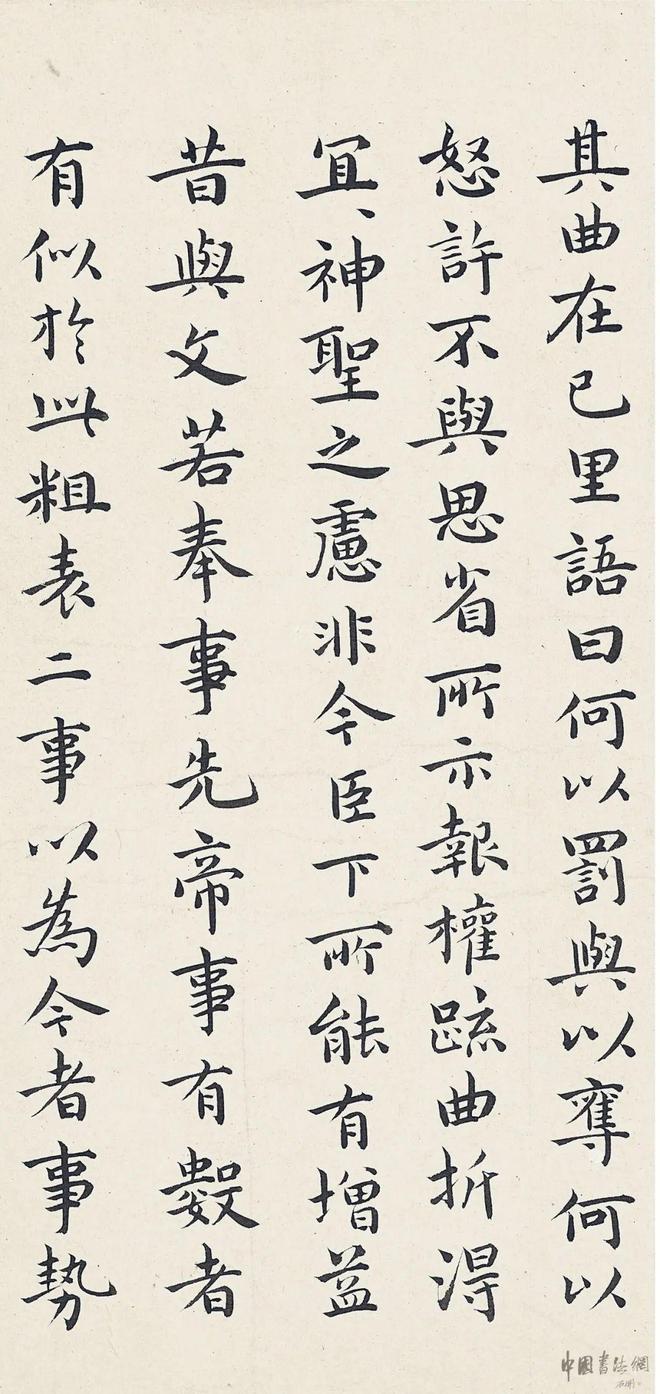 其曲在已里語曰何以罰與以奪何以
怒許不與思省所示報權疏曲折得
冝、神聖之慮非今臣下所能有增益
昔與文若奉事先帝事有數者
有似於此粗表二事以為今者事勢
中國書法網